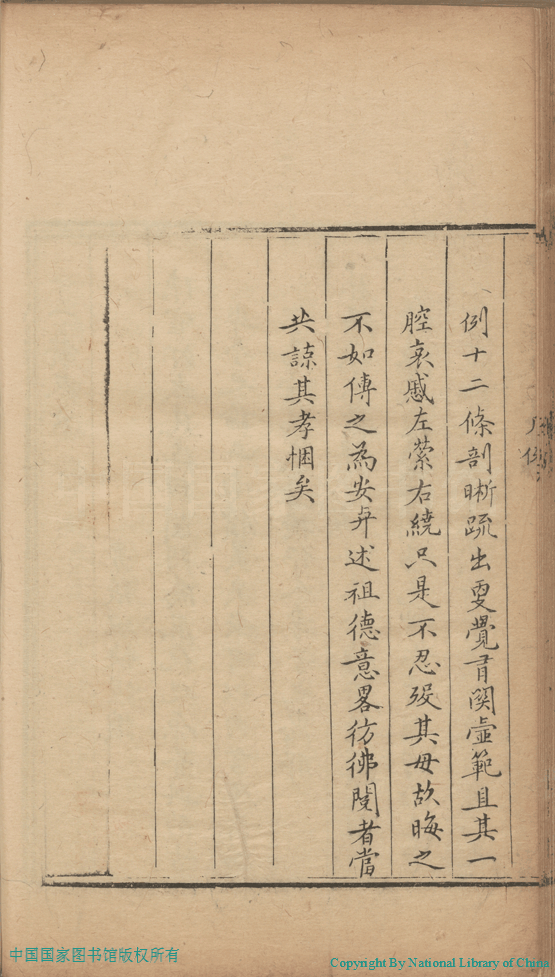 例十二條剖晰疏出更覺有関壼範且其一
腔哀慼左縈右繞只是不忍歿其母故晦之
不如傳之為安弁述祖德意畧彷彿閱者當
共諒其孝悃矣
中国国家图书馆版权所有
Copyright By National Library of China